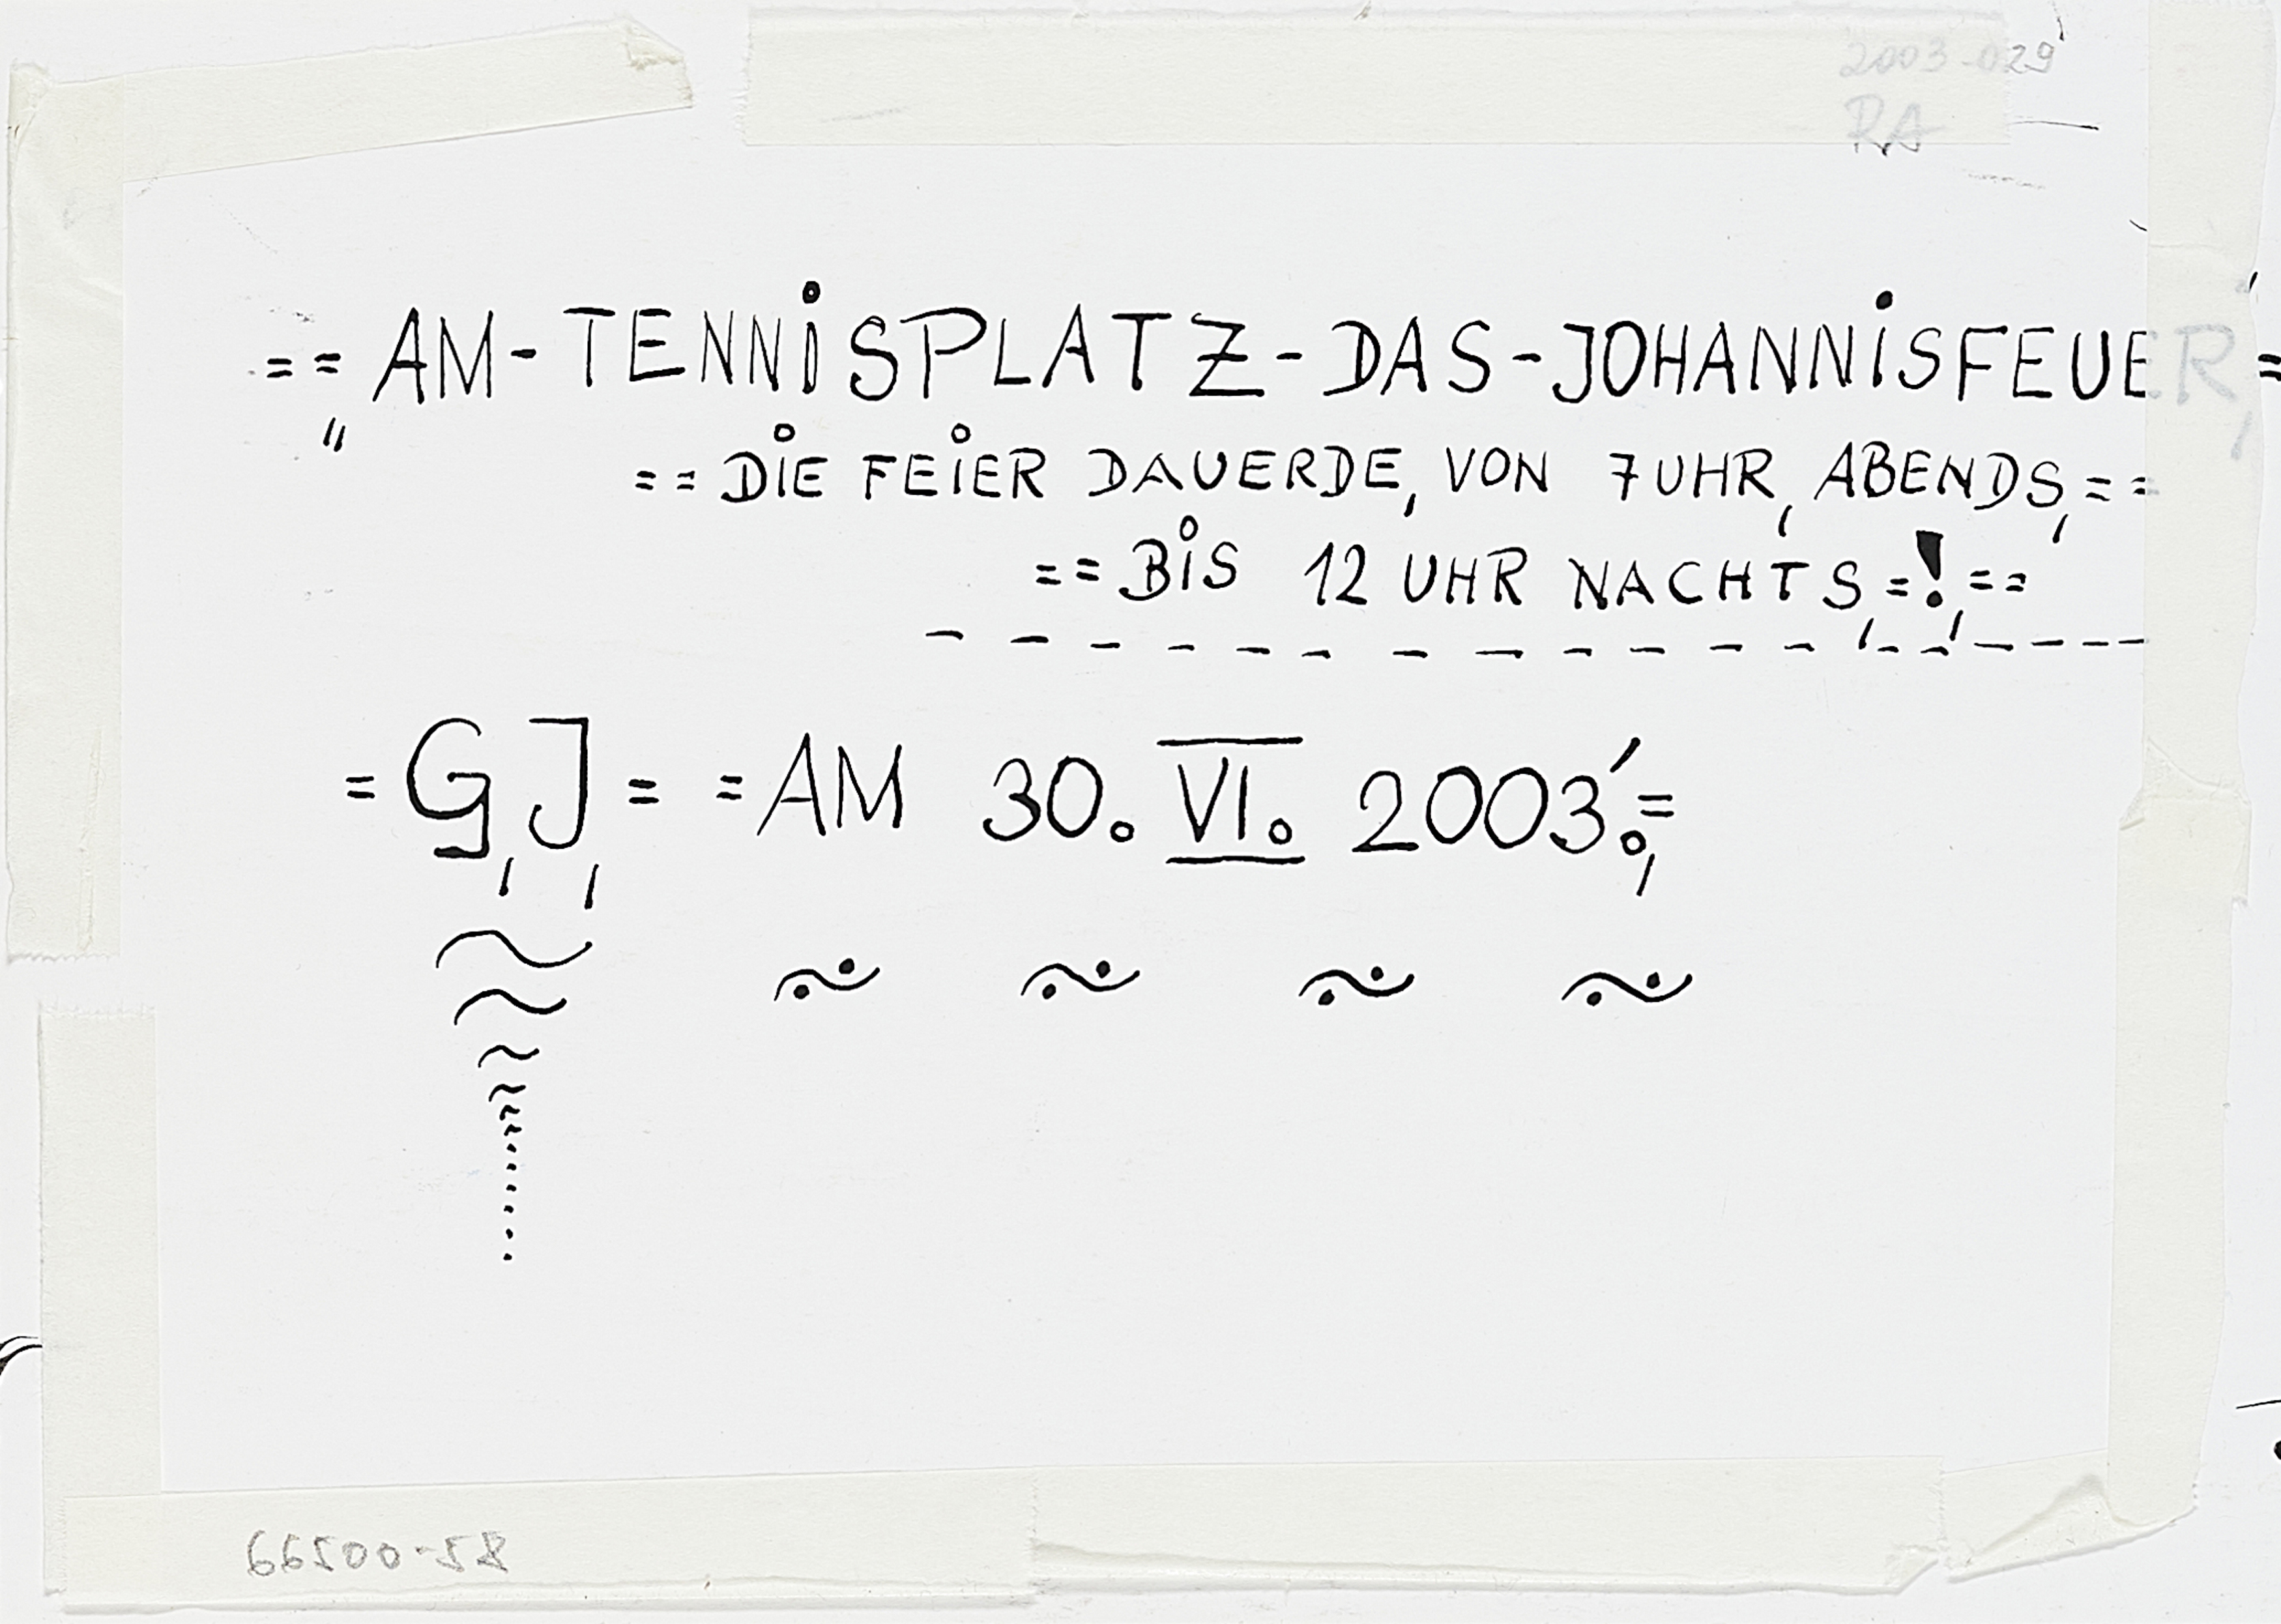 2003-029
RA
= = AM - TENNiSPLATZ - DAS - JOHANNiSFEUER, =
" = = DiE FEiER DAUERDE, VON 7 UHR, ABENDS, = =
= = BiS 12 UHR NACHTS, = !, = =
= G, J, = = AM 30. VI. 2003'., =
66500-58